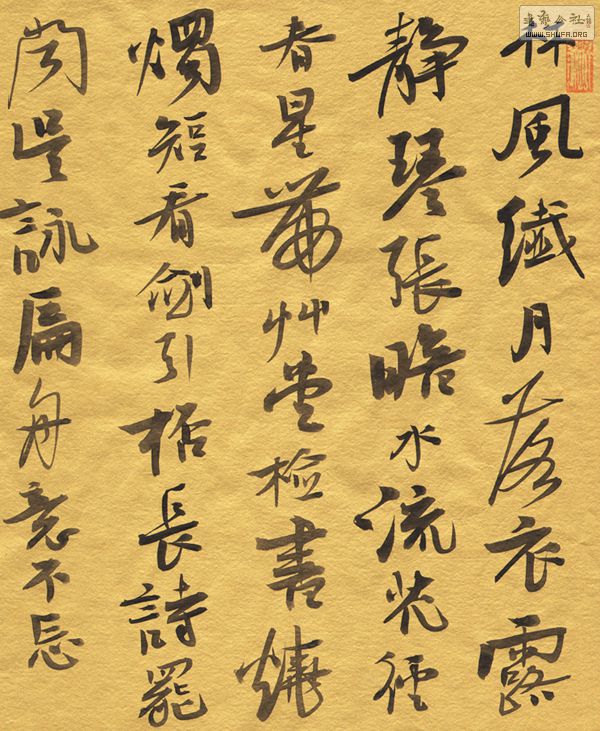 林風纖月落衣露
静琴張暗水流花徑
春星帶艸堂檢書燒
燭短看劍引桮長詩罷
聞吳詠扁舟意不忘
書藝公社
WWW.SHUFA.ORG